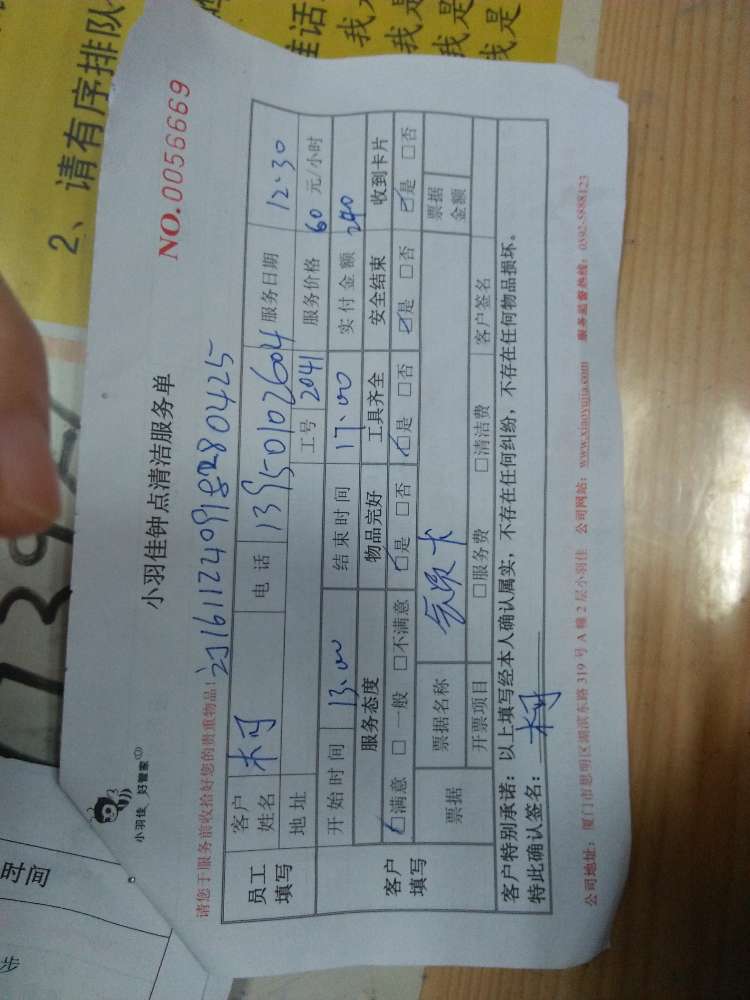 2、请有序排队
我是
我是
我是
我是
时间
小羽佳
好管家
小羽佳钟点清洁服务单
NO.0056669
请您于服务前收拾好您的贵重物品!
1611240918280425
员工填写
客户姓名 柯 电话 13950102604 服务日期 12.30
地址 工号 2041 服务价格 60 元/小时
开始时间 13.00 结束时间 17.00 实付金额 240
客户填写
服务态度 物品完好 工具齐全 安全结束 收到卡片
☑满意 □一般 □不满意 ☑是 □否 ☑是 □否 ☑是 □否 ☑是 □否
票据 票据名称 卡 票据金额
开票项目 □服务费 □清洁费 客户签名
客户特别承诺:以上填写经本人确认属实,不存在任何纠纷,不存在任何物品损坏。
特此确认签名: 柯
公司地址:厦门市思明区湖滨东路319号A幢2层小羽佳 公司网站:www.xiaoyujia.com 服务监督热线:0592-5888123